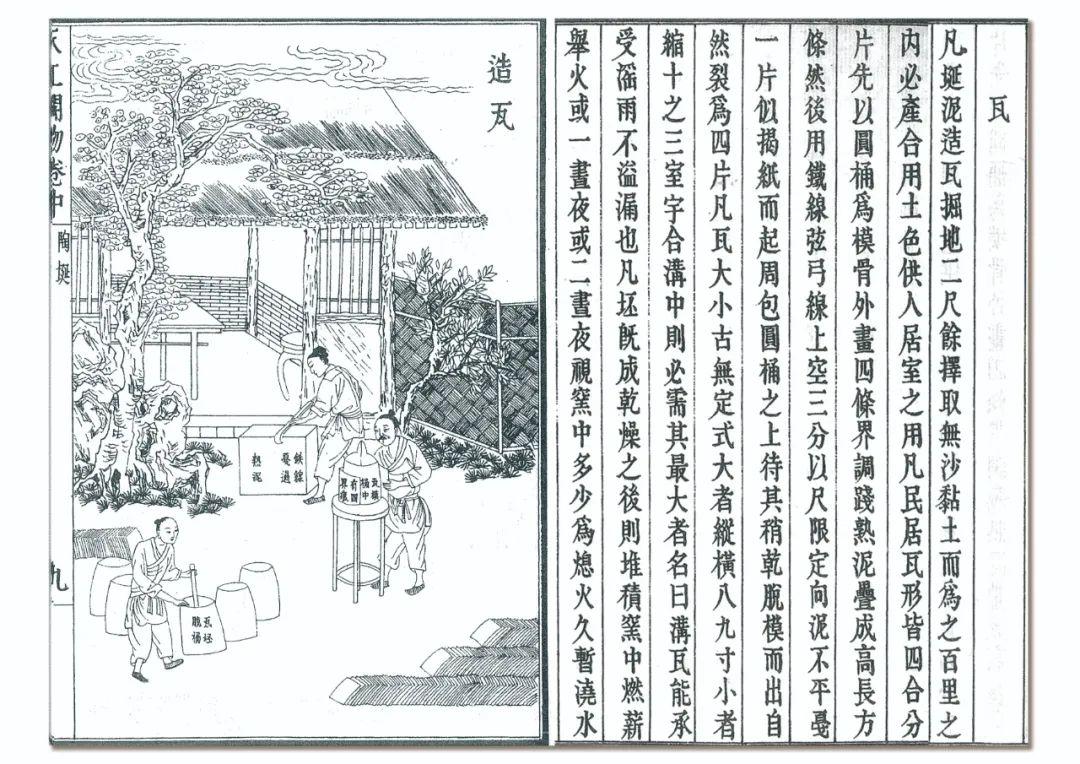 瓦
凡埏泥造瓦掘地二尺餘擇取無沙黏土而爲之百里之
內必產合用土色供人居室之用凡民居瓦形皆四合分
片先以圓桶爲模骨外畫四條界調踐熟泥疊成高長方
條然後用鐵線弦弓線上空三分以尺限定向泥不平戛
一片似揭紙而起周包圓桶之上待其稍乾脫模而出自
然裂爲四片凡瓦大小古無定式大者縱橫八九寸小者
縮十之三室宇合溝中則必需其最大者名曰溝瓦能承
受滛雨不溢漏也凡坯旣成乾燥之後則堆積窑中燃薪
舉火或一晝夜或二晝夜視窑中多少爲熄火久暫澆水
造瓦
鉄線
戛過
熟泥
瓦模
桶中
有四
界痕
瓦坯
脫桶
天工開物卷中
陶埏
九